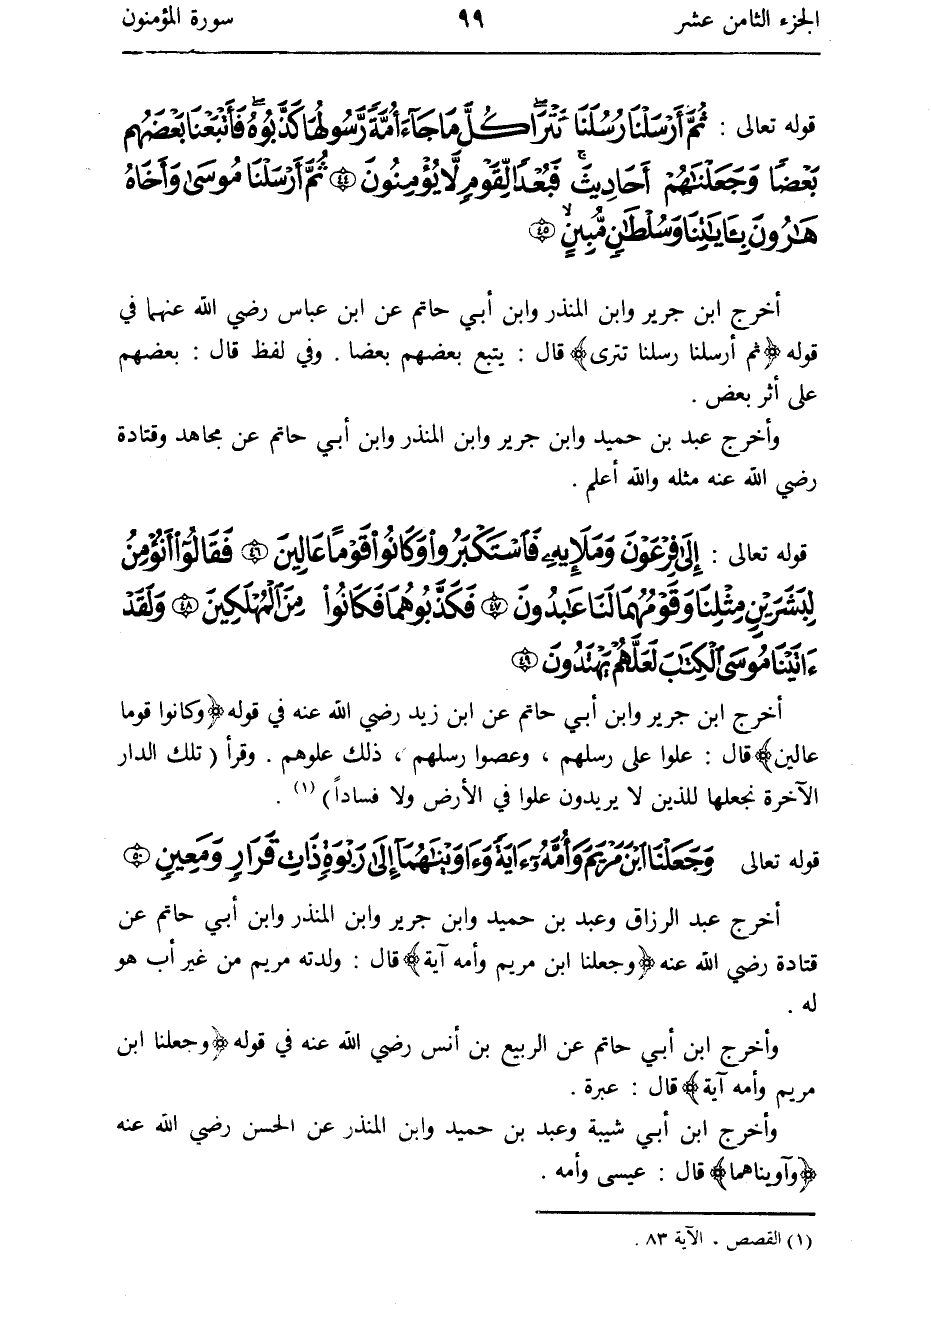 الجزء الثامن عشر ٩٩ سورة المؤمنون
قوله تعالى : ثُمَّ أَرۡسَلۡنَا رُسُلَنَا تَتۡرَاۖ كُلَّ مَا جَآءَ أُمَّةٗ رَّسُولُهَا كَذَّبُوهُۖ فَأَتۡبَعۡنَا بَعۡضَهُم
بَعۡضٗا وَجَعَلۡنَٰهُمۡ أَحَادِيثَۚ فَبُعۡدٗا لِّقَوۡمٖ لَّا يُؤۡمِنُونَ ٤٤ ثُمَّ أَرۡسَلۡنَا مُوسَىٰ وَأَخَاهُ
هَٰرُونَ بِـَٔايَٰتِنَا وَسُلۡطَٰنٖ مُّبِينٍۙ ٤٥
أخرج ابن جرير وابن المنذر وابن أبي حاتم عن ابن عباس رضي الله عنهما في
قوله ﴿ثم أرسلنا رسلنا تترى﴾ قال : يتبع بعضهم بعضا . وفي لفظ قال : بعضهم
على أثر بعض .
وأخرج عبد بن حميد وابن جرير وابن المنذر وابن أبي حاتم عن مجاهد وقتادة
رضي الله عنه مثله والله أعلم .
قوله تعالى : إِلَىٰ فِرۡعَوۡنَ وَمَلَإِيْهِۦ فَٱسۡتَكۡبَرُواْ وَكَانُواْ قَوۡمًا عَالِينَ ٤٦ فَقَالُوٓاْ أَنُؤۡمِنُ
لِبَشَرَيۡنِ مِثۡلِنَا وَقَوۡمُهُمَا لَنَا عَٰبِدُونَ ٤٧ فَكَذَّبُوهُمَا فَكَانُواْ مِنَ ٱلۡمُهۡلَكِينَ ٤٨ وَلَقَدۡ
ءَاتَيۡنَا مُوسَى ٱلۡكِتَٰبَ لَعَلَّهُمۡ يَهۡتَدُونَ ٤٩
أخرج ابن جرير وابن أبي حاتم عن ابن زيد رضي الله عنه في قوله ﴿وكانوا قوما
عالين﴾ قال : علوا على رسلهم ، وعصوا رسلهم ، ذلك علوهم . وقرأ ( تلك الدار
الآخرة نجعلها للذين لا يريدون علوا في الأرض ولا فساداً ) (١) .
قوله تعالى وَجَعَلۡنَا ٱبۡنَ مَرۡيَمَ وَأُمَّهُۥٓ ءَايَةٗ وَءَاوَيۡنَٰهُمَآ إِلَىٰ رَبۡوَةٖ ذَاتِ قَرَارٖ وَمَعِينٖ ٥٠
أخرج عبد الرزاق وعبد بن حميد وابن جرير وابن المنذر وابن أبي حاتم عن
قتادة رضي الله عنه ﴿وجعلنا ابن مريم وأمه آية﴾ قال : ولدته مريم من غير أب هو
له .
وأخرج ابن أبي حاتم عن الربيع بن أنس رضي الله عنه في قوله ﴿وجعلنا ابن
مريم وأمه آية﴾ قال : عبرة .
وأخرج ابن أبي شيبة وعبد بن حميد وابن المنذر عن الحسن رضي الله عنه
﴿وآويناهما﴾ قال : عيسى وأمه .
(١) القصص . الآية ٨٣ .